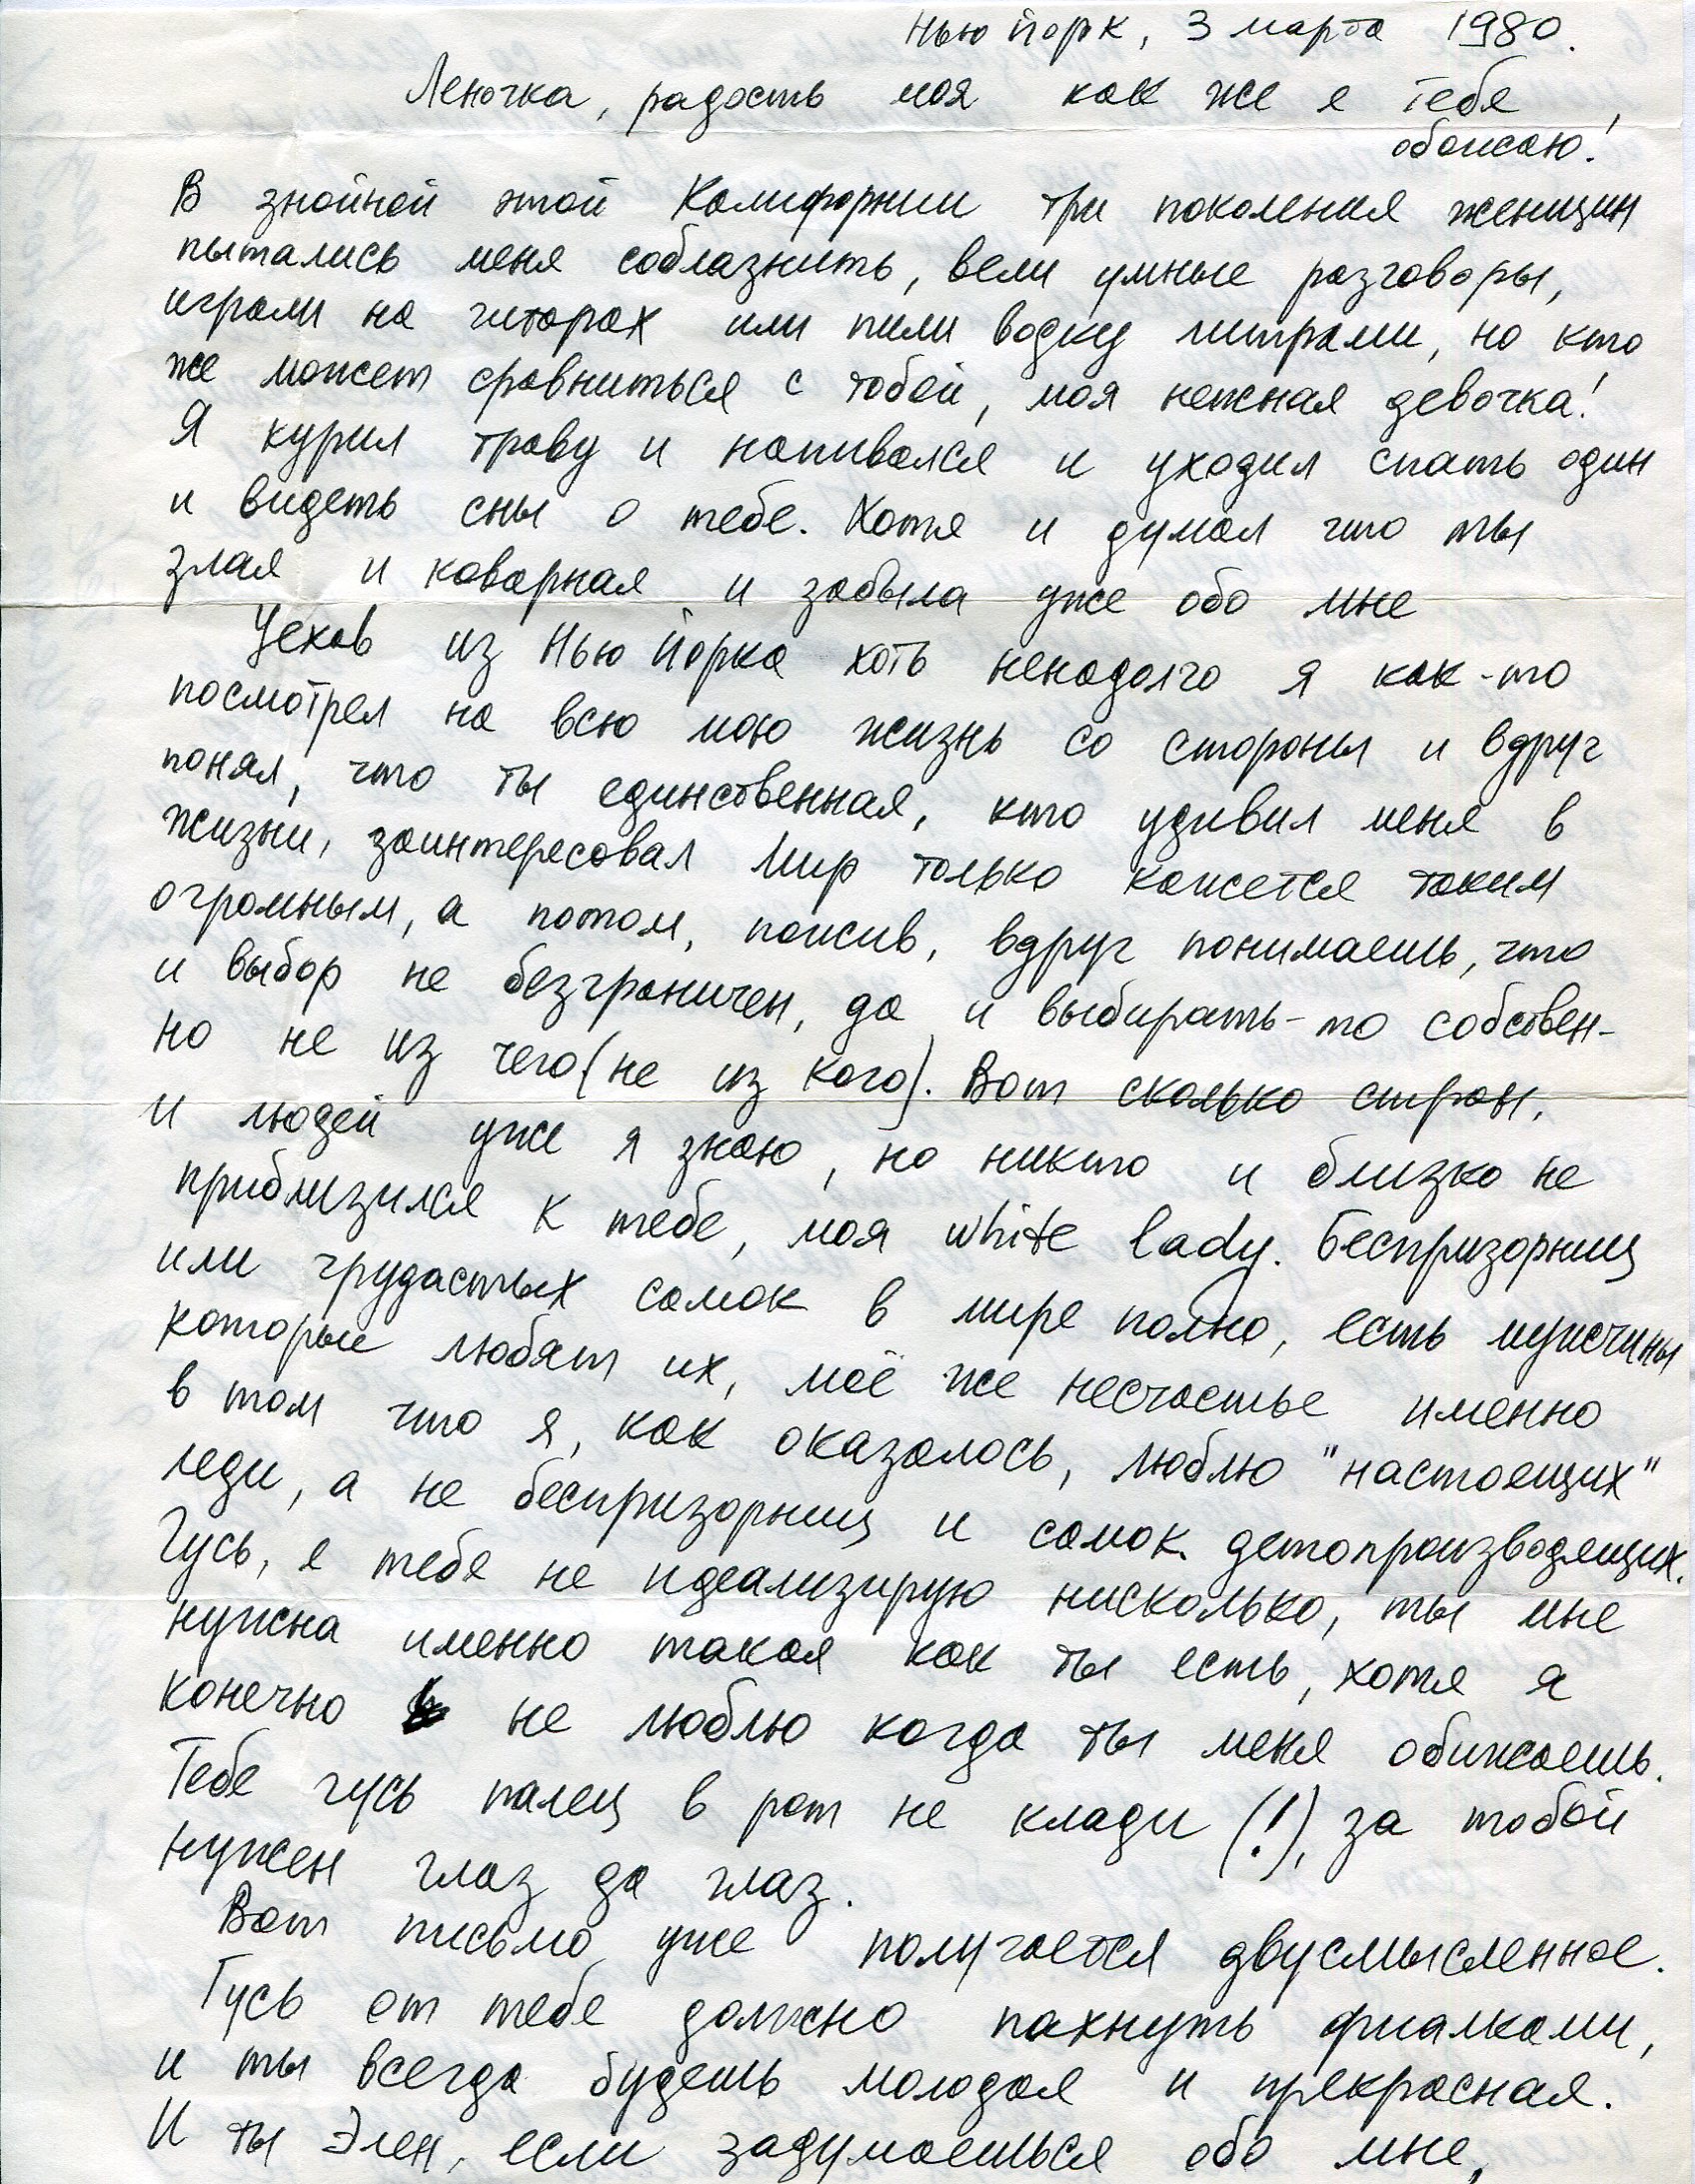 Нью Йорк, 3 марта 1980.
Леночка, радость моя как же я тебя,
обожаю!
В знойной этой Калифорнии три поколения женщин
пытались меня соблазнить, вели умные разговоры,
играли на гитарах или пили водку литрами, но кто
же может сравниться с тобой, моя нежная девочка!
Я курил траву и напивался и уходил спать один
и видеть сны о тебе. Хотя и думал что ты
злая и коварная и забыла уже обо мне
Уехав из Нью Йорка хоть ненадолго я как-то
посмотрел на всю мою жизнь со стороны и вдруг
понял, что ты единственная, кто удивил меня в
жизни, заинтересовал Мир только кажется таким
огромным, а потом, пожив, вдруг понимаешь, что
и выбор не безграничен, да и выбирать-то собствен-
но не из чего (не из кого). Вот сколько стран,
и людей уже я знаю, но никто и близко не
приблизился к тебе, моя white lady. Беспризорниц
или грудастых самок в мире полно, есть мужчины
которые любят их, моё же несчастье именно
в том что я, как оказалось, люблю "настоящих"
леди, а не беспризорниц и самок детопроизводящих.
Гусь, я тебя не идеализирую нисколько, ты мне
нужна именно такая как ты есть, хотя я
конечно не люблю когда ты меня обижаешь.
Тебе гусь палец в рот не клади (!), за тобой
нужен глаз да глаз.
Вот письмо уже получается двусмысленное.
Гусь от тебя должно пахнуть фиалками,
и ты всегда будешь молодая и прекрасная.
И ты Элен, если задумаешься обо мне,